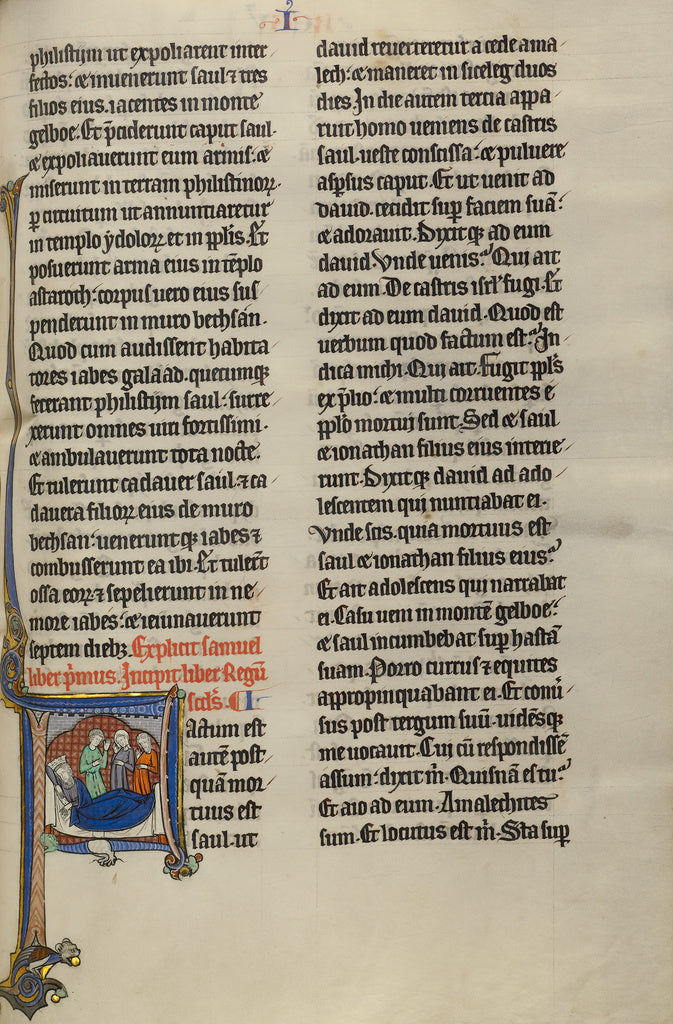 I
philistijm ut expoliarent inter
fectos: ⁊ invenerunt saul ⁊ tres
filios eius iacentes in monte
gelboe. Et p̄ciderunt caput saul.
⁊ expoliaverunt eum armis: ⁊
miserunt in terram philistinoꝝ.
ꝑ circuitum ut annuntiaretur
in templo ydoloꝝ et in pp̄lis. Et
posuerunt arma eius in tēplo
astaroth: corpus vero eius sus
penderunt in muro bethsan.
Quod cum audissent habita
tores iabes galaad. quecumqꝫ
fecerant philistijm saul: surre
xerunt omnes viri fortissimi.
⁊ ambulaverunt tota nocte.
Et tulerunt cadaver saul. ⁊ ca
davera filioꝝ eius de muro
bethsan: veneruntqꝫ iabes ⁊
combusserunt ea ibi. Et tulerūt
ossa eoꝝ ⁊ sepelierunt in ne
more iabes: ⁊ ieiunaverunt
septem diebꝫ. Explicit samuel
liber p̄mus. Incipit liber Regū
scd̄s. C I.
Factum est
autē post
quā mor
tuus est
saul. ut
david reverteretur a cede ama
lech: ⁊ maneret in siceleg duos
dies. In die autem tercia appa
ruit homo veniens de castris
saul. veste conscissa: ⁊ pulvere
asp̄sus caput. Et ut venit ad
david. cecidit sup̄ faciem suā:
⁊ adoravit. Dixitqꝫ ad eum
david. Unde venis? Qui ait
ad eum. De castris isrl̄ fugi. Et
dixit ad eum david. Quod est
verbum quod factum est? In
dica michi. Qui ait. Fugit pp̄ls
ex p̄lio: ⁊ multi corruentes e
pp̄lo mortui sunt. Sed ⁊ saul
⁊ ionathan filius eius interie
runt. Dixitqꝫ david ad ado
lescentem qui nuntiabat ei.
Unde scis. quia mortuus est
saul ⁊ ionathan filius eius?
Et ait adolescens qui narrabat
ei. Casu veni in montē gelboe:
⁊ saul incumbebat sup̄ hastā
suam. Porro currus ⁊ equites
appropinquabant ei. Et conv̄
sus post tergum suū. vidēsqꝫ
me vocavit. Cui cū respondissē
assum: dixit m̄. Quisnā es tu?
Et aio ad eum. Amalechites
sum. Et locutus est m̄. Sta sup̄